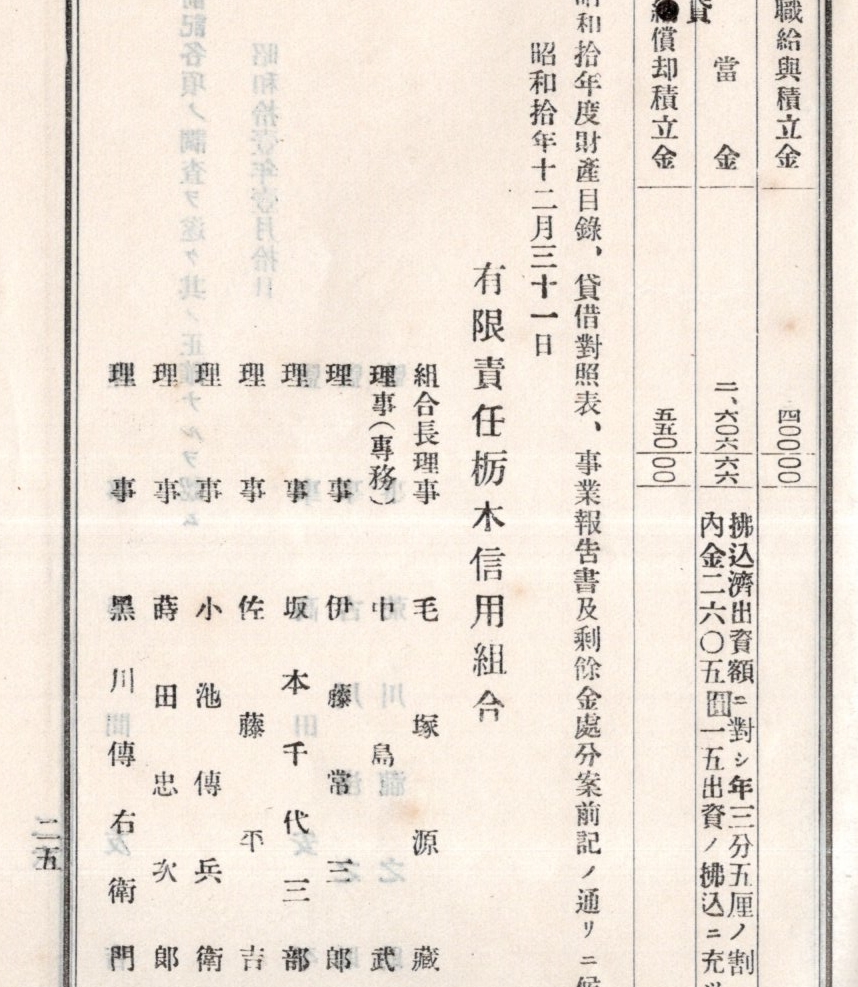 職給與積立金 四〇〇〇〇
當金 二、六〇六六六 拂込濟出資額ニ對シ年三分五厘ノ割
內金二六〇五圓一五出資ノ拂込ニ充
償却積立金 五五〇〇〇
和拾年度財產目錄、貸借對照表、事業報告書及剩餘金處分案前記ノ通リニ候
昭和拾年十二月三十一日
有限責任栃木信用組合
組合長理事 毛塚源藏
理事(專務) 中島武
理事 伊藤常三郎
理事 坂本千代三部
理事 佐藤平吉
理事 小池傳兵衛
理事 蒔田忠次郎
理事 黑川傳右衛門
二五